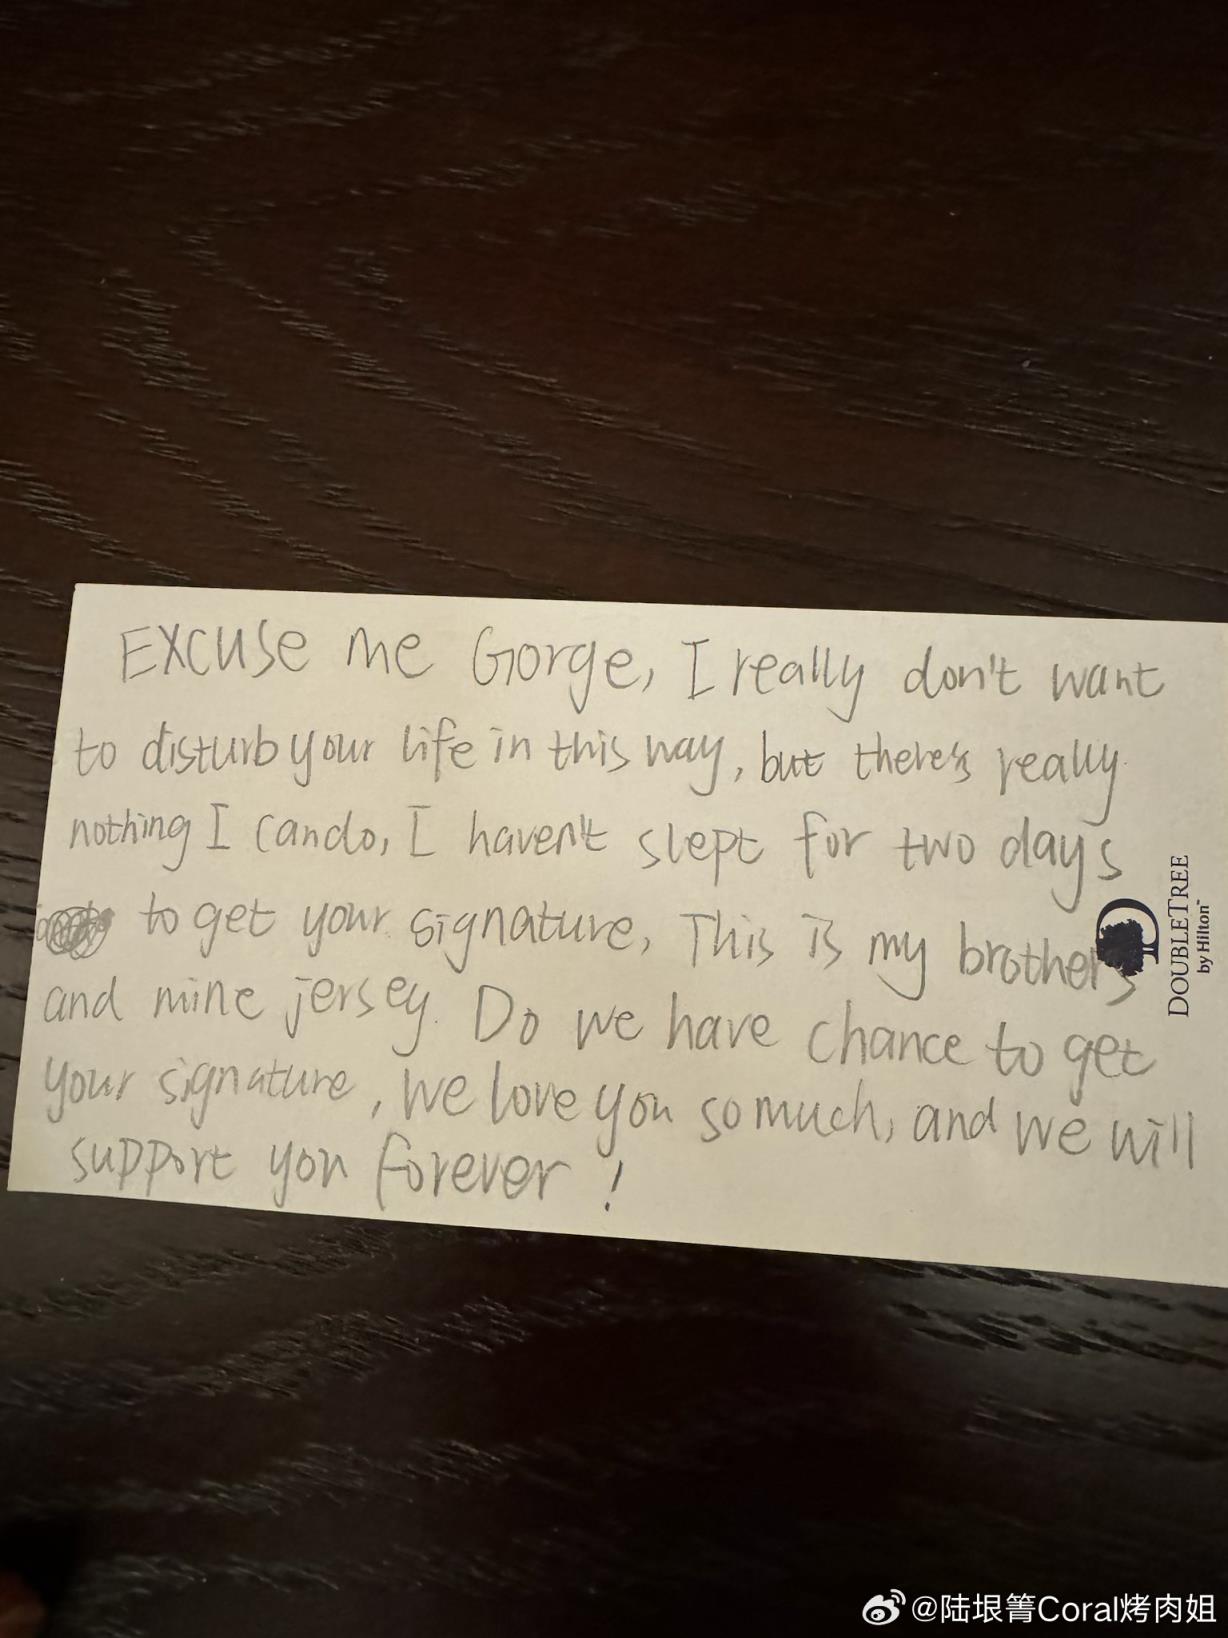 Excuse me Gorge, I really don't want
to disturb your life in this way, but there's really
nothing I can do, I haven't slept for two days
to get your signature, This is my brothers
and mine jersey. Do we have chance to get
your signature, we love you so much, and we will
support you forever!
DOUBLETREE
by Hilton™
@陆垠箐Coral烤肉姐